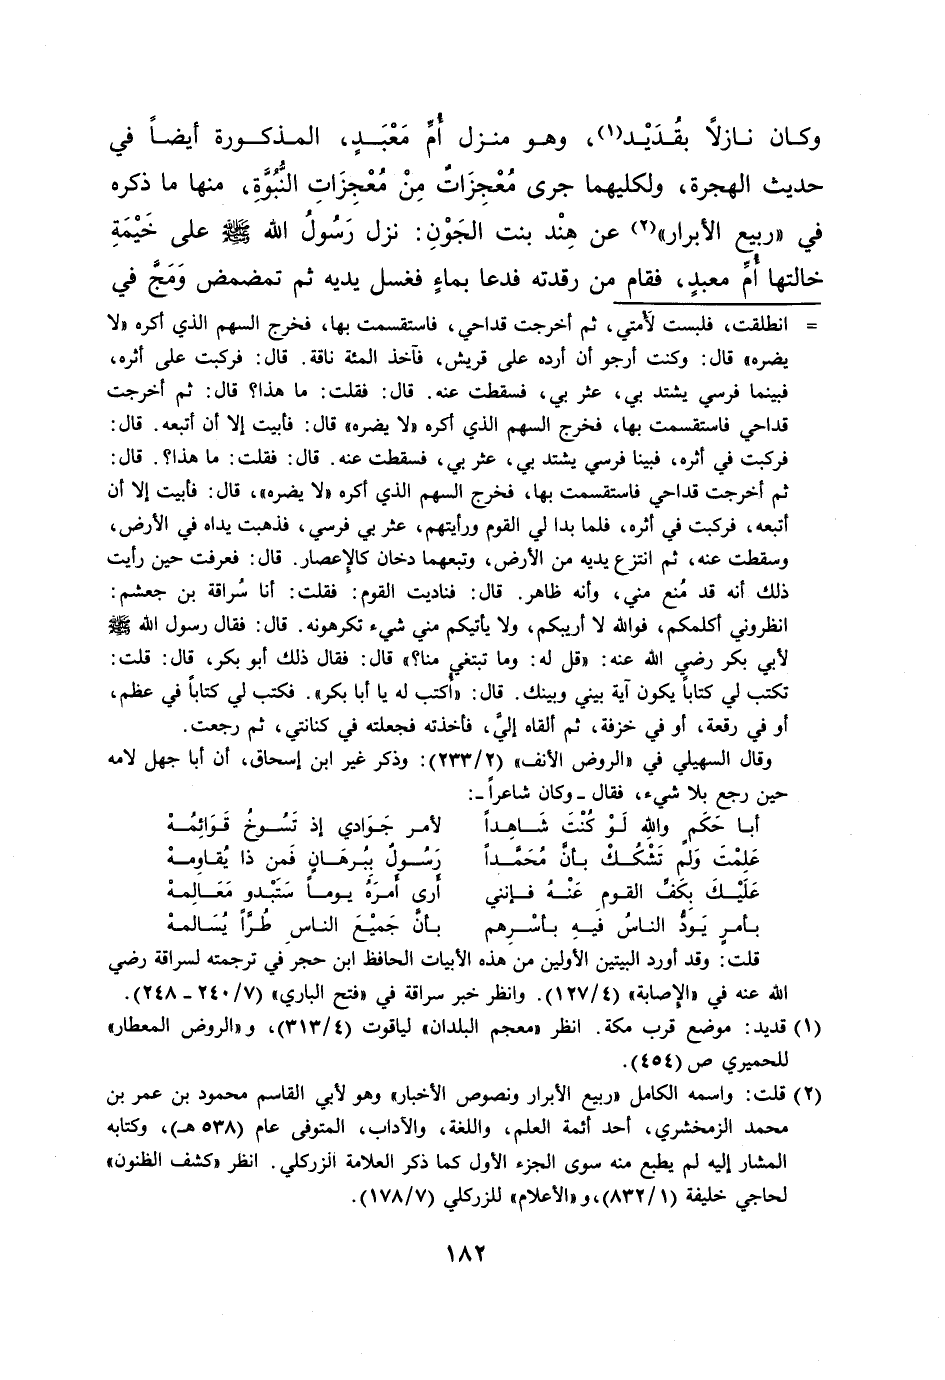 وكان نازلاً بقُدَيْد(١)، وهو منزل أُمِّ مَعْبَدٍ، المذكورة أيضاً في
حديث الهجرة، ولكليهما جرى مُعْجِزَاتٌ مِنْ مُعْجِزَاتِ النُّبُوَّةِ، منها ما ذكره
في «ربيع الأبرار»(٢) عن هِنْد بنت الجَوْنِ: نزل رَسُولُ الله ﷺ على خَيْمَةِ
خالتها أُمِّ معبدٍ، فقام من رقدته فدعا بماءٍ فغسل يديه ثم تمضمض وَمَجَّ في
= انطلقت، فلبست لأمتي، ثم أخرجت قداحي، فاستقسمت بها، فخرج السهم الذي أكره «لا
يضره» قال: وكنت أرجو أن أرده على قريش، فآخذ المئة ناقة. قال: فركبت على أثره،
فبينما فرسي يشتد بي، عثر بي، فسقطت عنه. قال: فقلت: ما هذا؟ قال: ثم أخرجت
قداحي فاستقسمت بها، فخرج السهم الذي أكره «لا يضره» قال: فأبيت إلا أن أتبعه. قال:
فركبت في أثره، فبينا فرسي يشتد بي، عثر بي، فسقطت عنه. قال: فقلت: ما هذا؟. قال:
ثم أخرجت قداحي فاستقسمت بها، فخرج السهم الذي أكره «لا يضره»، قال: فأبيت إلا أن
أتبعه، فركبت في أثره، فلما بدا لي القوم ورأيتهم، عثر بي فرسي، فذهبت يداه في الأرض،
وسقطت عنه، ثم انتزع يديه من الأرض، وتبعهما دخان كالإعصار. قال: فعرفت حين رأيت
ذلك أنه قد مُنع مني، وأنه ظاهر. قال: فناديت القوم: فقلت: أنا سُراقة بن جعشم:
انظروني أكلمكم، فوالله لا أريبكم، ولا يأتيكم مني شيء تكرهونه. قال: فقال رسول الله ﷺ
لأبي بكر رضي الله عنه: «قل له: وما تبتغي منا؟» قال: فقال ذلك أبو بكر، قال: قلت:
تكتب لي كتاباً يكون آية بيني وبينك. قال: «أُكتب له يا أبا بكر». فكتب لي كتاباً في عظم،
أو في رقعة، أو في خزفة، ثم ألقاه إليَّ، فأخذته فجعلته في كنانتي، ثم رجعت.
وقال السهيلي في «الروض الأنف» (٢/ ٢٣٣): وذكر غير ابن إسحاق، أن أبا جهل لامه
حين رجع بلا شيء، فقال ـ وكان شاعراً ـ:
أبا حَكَمٍ واللهِ لَوْ كُنْتَ شَاهِداً لأمرِ جَوَادي إذ تَسُوخُ قَوَائِمُهْ
عَلِمْتَ وَلَم تَشْكُكْ بأنَّ مُحَمَّداً رَسُولٌ بِبُرهَانٍ فَمن ذا يُقَاوِمهْ
عَلَيْكَ بِكَفِّ القومِ عَنْهُ فإنني أرى أمرَهُ يوماً سَتَبْدو مَعَالِمهْ
بأمرٍ يَودُّ الناسُ فيهِ بأسْرِهِم بأنَّ جَمِيْعَ الناسِ طُرَّاً يُسَالمهْ
قلت: وقد أورد البيتين الأولين من هذه الأبيات الحافظ ابن حجر في ترجمته لسراقة رضي
الله عنه في «الإصابة» (٤/ ١٢٧). وانظر خبر سراقة في «فتح الباري» (٧/ ٢٤٠ ـ ٢٤٨).
(١) قديد: موضع قرب مكة. انظر «معجم البلدان» لياقوت (٤/ ٣١٣)، و«الروض المعطار»
للحميري ص (٤٥٤).
(٢) قلت: واسمه الكامل «ربيع الأبرار ونصوص الأخبار» وهو لأبي القاسم محمود بن عمر بن
محمد الزمخشري، أحد أئمة العلم، واللغة، والآداب، المتوفى عام (٥٣٨ هـ)، وكتابه
المشار إليه لم يطبع منه سوى الجزء الأول كما ذكر العلامة الزركلي. انظر «كشف الظنون»
لحاجي خليفة (١/ ٨٣٢)، و«الأعلام» للزركلي (٧/ ١٧٨).
١٨٢